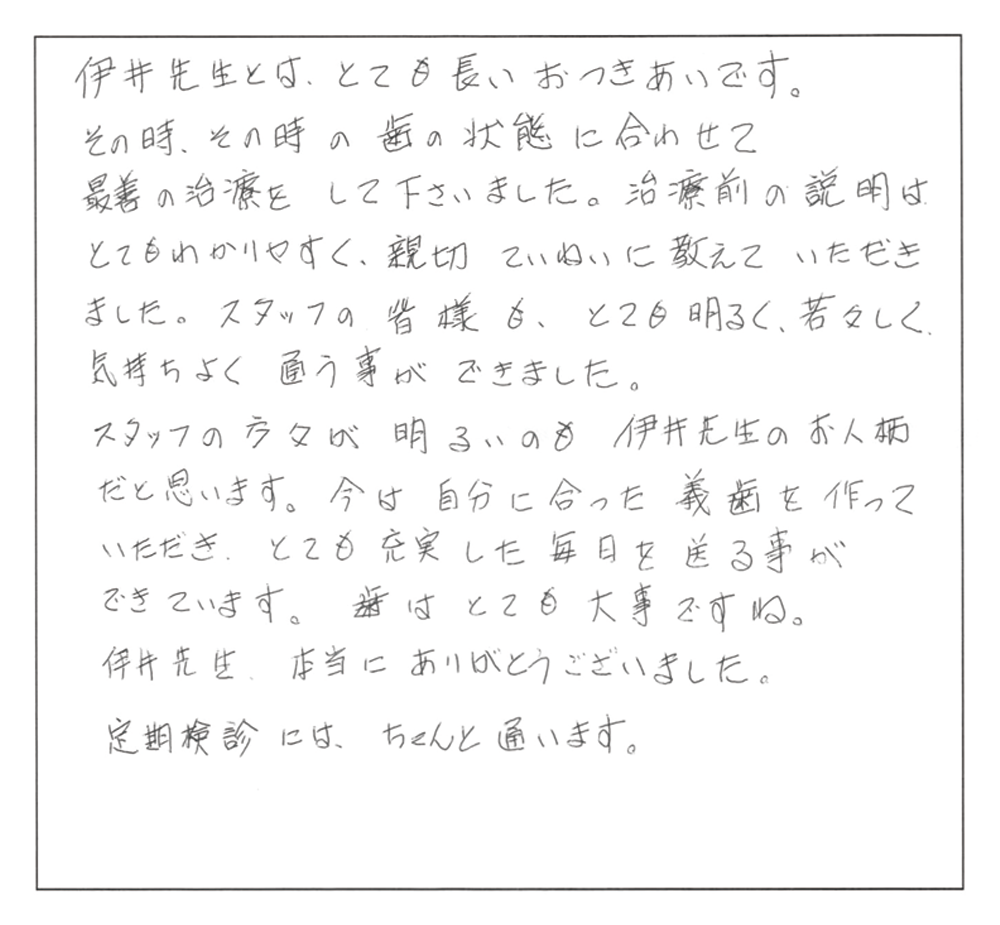 伊井先生とは、とても長いおつきあいです。
その時、その時の歯の状態に合わせて
最善の治療をして下さいました。治療前の説明は
とてもわかりやすく、親切ていねいに教えていただき
ました。スタッフの皆様も、とても明るく、若々しく、
気持ちよく通う事ができました。
スタッフの方々が明るいのも伊井先生のお人柄
だと思います。今は自分に合った義歯を作って
いただき、とても充実した毎日を送る事が
できています。歯はとても大事ですね。
伊井先生、本当にありがとうございました。
定期検診には、ちゃんと通います。